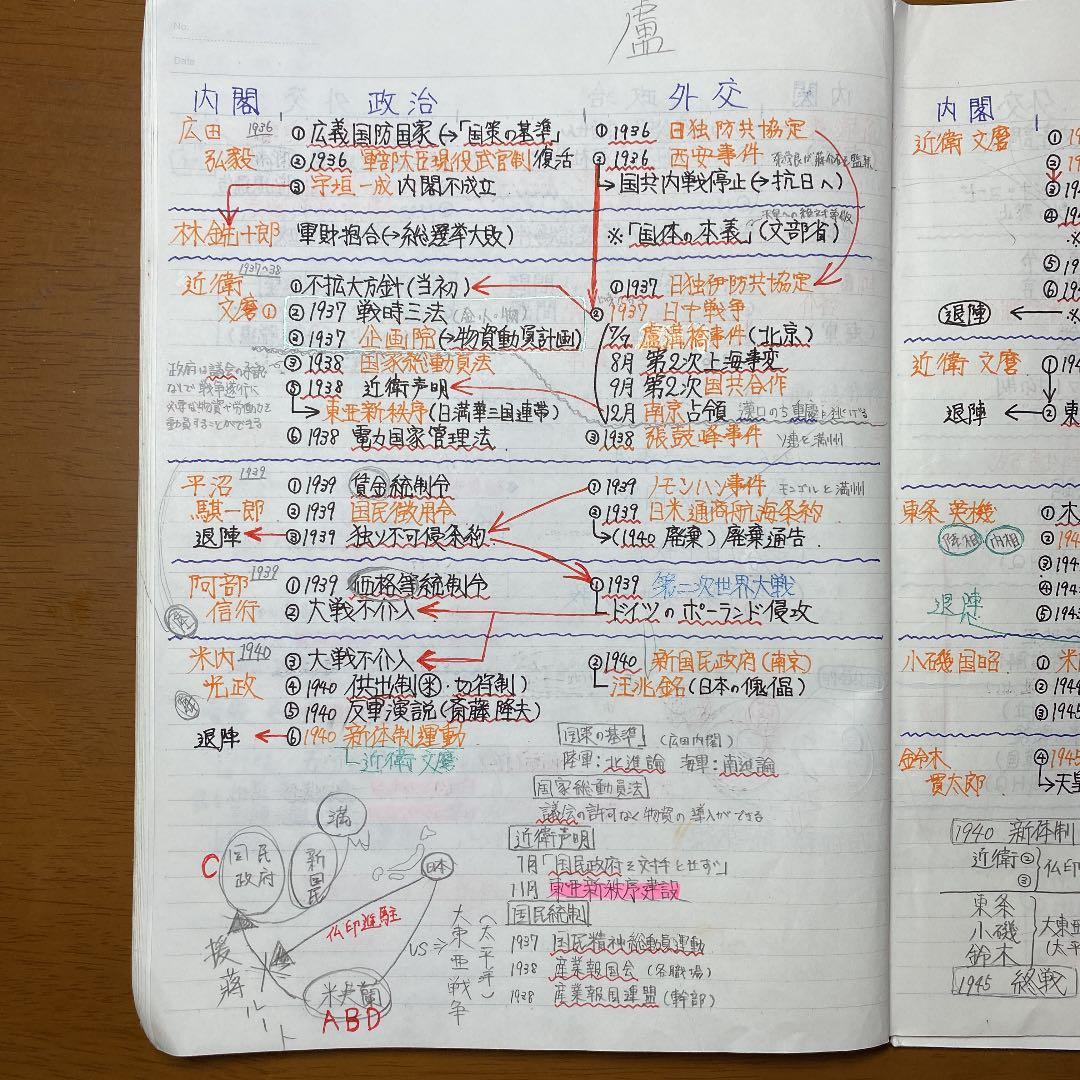 No.
Date
盧
内閣 政治 外交
広田弘毅 1936
① 広義国防国家(→「国策の基準」
② 1936 軍部大臣現役武官制復活
③ 宇垣一成内閣不成立
① 1936 日独防共協定
② 1936 西安事件
→国共内戦停止(→抗日へ)
林銑十郎 軍財抱合(→総選挙大敗)
※「国体の本義」(文部省)
近衛文麿① 1937〜38
① 不拡大方針(当初)
② 1937 戦時三法
② 1937 企画院(→物資動員計画)
③ 1938 国家総動員法
⑤ 1938 近衛声明
→東亜新秩序(日満華三国連帯)
⑥ 1938 電力国家管理法
政府は議会の承認
なしで戦争遂行に
必要な物資や労働力を
動員することができる
① 1937 日独伊防共協定
② 1937 日中戦争
7/7 盧溝橋事件(北京)
8月 第2次上海事変
9月 第2次国共合作
12月 南京占領 漢口のち重慶に逃げる
③ 1938 張鼓峰事件 ソ連と満州
平沼騏一郎 1939
① 1939 賃金統制令
② 1939 国民徴用令
退陣 ← ③ 1939 独ソ不可侵条約
① 1939 ノモンハン事件 モンゴルと満州
② 1939 日米通商航海条約
→(1940 廃棄) 廃棄通告
阿部信行 1939
① 1939 価格等統制令
② 大戦不介入
① 1939 第二次世界大戦
ドイツのポーランド侵攻
米内光政 1940
③ 大戦不介入
④ 1940 供出制(米)・切符制)
⑤ 1940 反軍演説(斎藤隆夫)
退陣 ← ⑥ 1940 新体制運動
近衛文麿
② 1940 新国民政府(南京)
汪兆銘(日本の傀儡)
国策の基準」(広田内閣)
陸軍:北進論 海軍:南進論
国家総動員法
議会の許可なく物資の導入ができる
近衛声明
1月「国民政府を対手とせず」
11月 東亜新秩序建設
国民統制
1937 国民精神総動員運動
1938 産業報国会(各職場)
1938 産業報国連盟(幹部)
満
国民政府
新国民
日本
C
仏印進駐
援蔣ルート
米英蘭
ABD
VS⇒大東亜戦争
(太平洋)
内閣
近衛文麿
退陣
近衛文麿
退陣
東条英機
陸相 内相
退陣
小磯国昭
鈴木貫太郎
④ 1945
→天皇
1940 新体制
近衛②
③
仏印
東条
小磯
鈴木
大東亜
(太平
1945 終戦